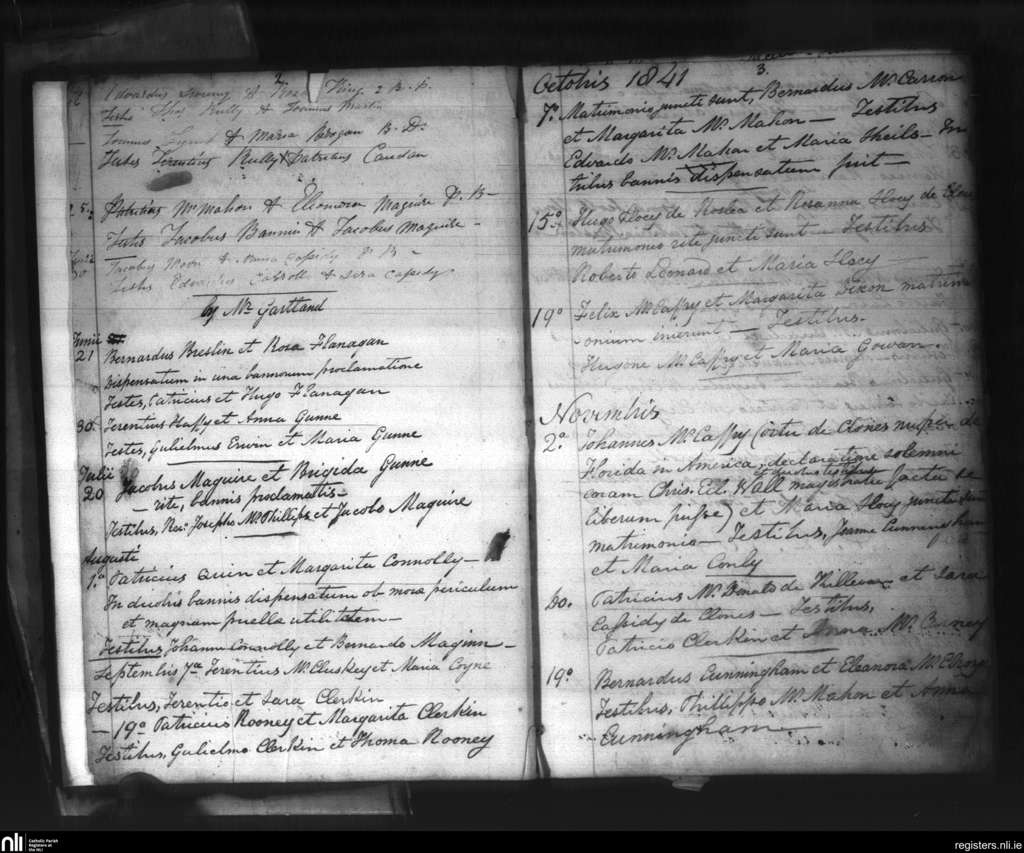 Edvardus & Rosa King 2 B. B.
Testes Thos Reilly & Thomas Martin
Thomas Lynch & Maria Brogan B. D.
Testes Terentius Reilly & Patricius
Patricius McMahon & Eleonora Maguire D. B
Testes Jacobus Bannin & Jacobus Maguire
Jacobus Moon & Maria Cassidy D. B
30 Testes Edvardus Carroll & Sera Cassidy
by Mr Gartland
Junii
21 Bernardus Breslin et Rosa Flanagan
Dispensatum in una bannorum proclamatione
Testes, Patricius et Hugo Flanagan
30. Terentius Haffy et Anna Gunne
Testes, Gulielmus Erwin et Maria Gunne
Julii
20 Jacobus Maguire et Brigida Gunne
rite, bannis proclamatis
Testibus, Revo Josepho McPhillips et Jacobo Maguire
Augusti
1.a Patricius Quin et Margarita Connolly
In duobus bannis dispensatum ob mora periculum
et magnam puella utilitatem
Testibus Johanne Connolly et Bernardo Maginn
Septembris 7a Terentius McCluskey et Maria Coyne
Testibus, Terentio et Sara Clerkin
19o Patricius Rooney et Margarita Clerkin
Testibus, Gulielmo Clerkin et Thoma Rooney
3.
Octobris 1841
7.o Matrimonio juncti sunt, Bernardus McCarron
et Margarita McMahon — Testibus
Edvardo McMahon et Maria Sheils — In
tribus bannis dispensatum fuit
15.o Hugo Hoey de Roslea et Rosanna Hoey de
matrimonio rite juncti sunt — Testibus
Roberto Leonard et Maria Hoey
19o Felix McCaffry et Margarita Dixon matrim
onium inierunt — Testibus
Hugone McCaffry et Maria Gowan.
Novembris
2.o Johannes McCaffry (ortu de Clones nuper de
Florida in America, declaratione solemni
coram Chris. Ed. Wall magistratu facta se
liberum fuisse) et Maria Hoey juncti sunt
matrimonio — Testibus, Jeanne Cunningham
et Maria Conly
Do. Patricius McDonald de Killevan et Sara
Cassidy de Clones — Testibus,
Patricio Clerkin et Anna McBarney
19o Bernardus Cunningham et Eleanora McElroy
Testibus, Phillippo McMahon et Anna
Cunningham
nli
Catholic Parish
Registers at
the NLI
registers.nli.ie